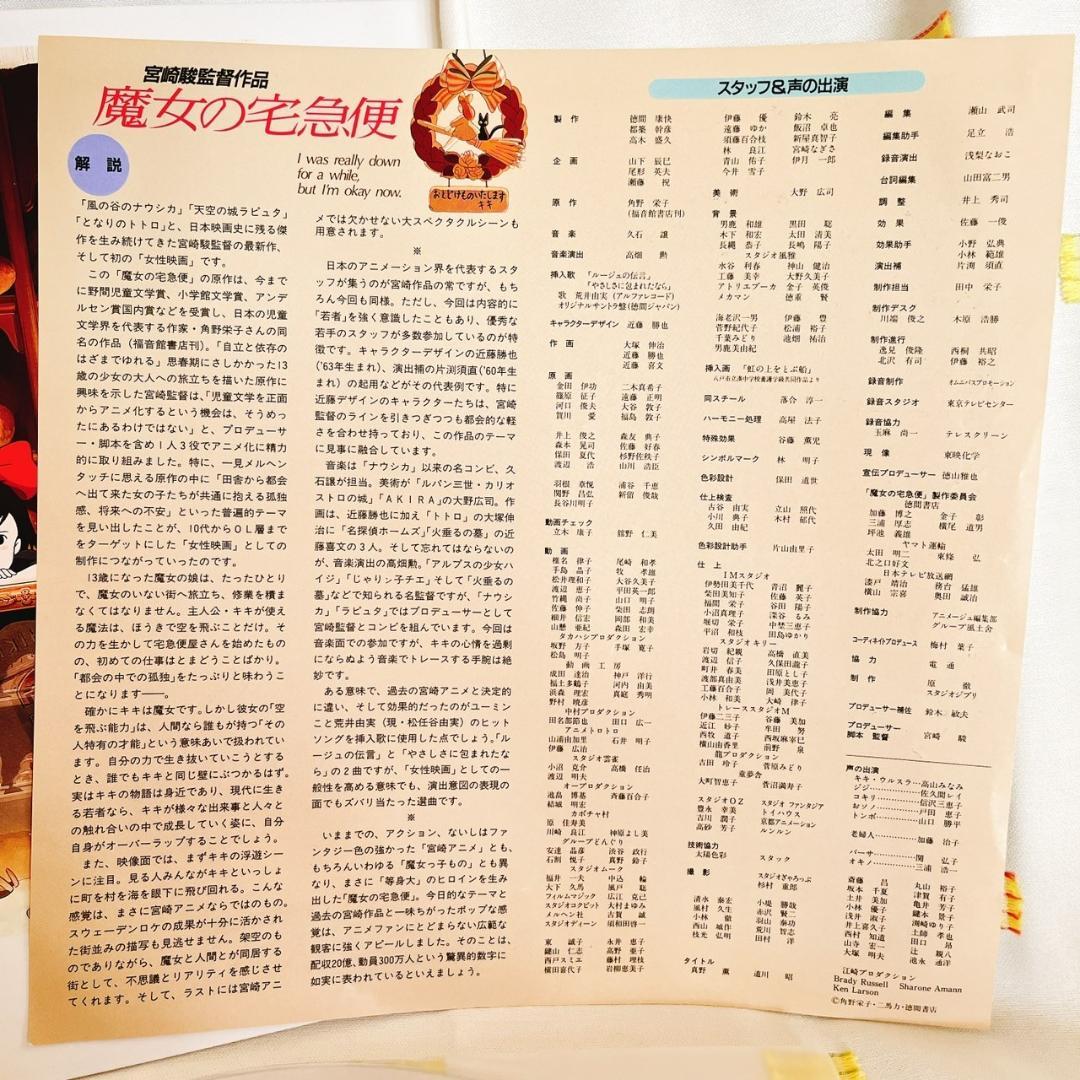 宮崎駿監督作品
魔女の宅急便
解説
I was really down
for a while,
but I'm okay now.
おとどけものいたします
キキ
「風の谷のナウシカ」「天空の城ラピュタ」
「となりのトトロ」と、日本映画史に残る傑
作を生み続けてきた宮崎駿監督の最新作、
そして初の「女性映画」です。
この「魔女の宅急便」の原作は、今まで
に野間児童文学賞、小学館文学賞、アンデ
ルセン賞国内賞などを受賞し、日本の児童
文学界を代表する作家・角野栄子さんの同
名の作品（福音館書店刊）。「自立と依存の
はざまでゆれる」思春期にさしかかった13
歳の少女の大人への旅立ちを描いた原作に
興味を示した宮崎監督は、「児童文学を正面
からアニメ化するという機会は、そうめっ
たにあるわけではない」と、プロデューサ
ー・脚本を含め1人3役でアニメ化に精力
的に取り組みました。特に、一見メルヘン
タッチに思える原作の中に「田舎から都会
へ出て来た女の子たちが共通に抱える孤独
感、将来への不安」といった普遍的テーマ
を見い出したことが、10代からOL層まで
をターゲットにした「女性映画」としての
制作につながっていったのです。
13歳になった魔女の娘は、たったひとり
で、魔女のいない街へ旅立ち、修業を積ま
なくてはなりません。主人公・キキが使え
る魔法は、ほうきで空を飛ぶことだけ。そ
の力を生かして宅急便屋さんを始めたもの
の、初めての仕事はとまどうことばかり。
「都会の中での孤独」をたっぷりと味わうこ
とになります――。
確かにキキは魔女です。しかし彼女の「空
を飛ぶ能力」は、人間なら誰もが持つ「その
人特有の才能」という意味あいで扱われてい
ます。自分の力で生き抜いていこうとする
とき、誰でもキキと同じ壁にぶつかるはず。
実はキキの物語は身近であり、現代に生き
る若者なら、キキが様々な出来事と人々と
の触れ合いの中で成長していく姿に、自分
自身がオーバーラップすることでしょう。
また、映像面では、まずキキの浮遊シー
ンに注目。見る人みんながキキといっしょ
に町を村を海を眼下に飛び回れる。こんな
感覚は、まさに宮崎アニメならではのもの。
スウェーデンロケの成果が十分に活かされ
た街並みの描写も見逃せません。架空のも
のでありながら、魔女と人間とが同居する
街として、不思議とリアリティを感じさせ
てくれます。そして、ラストには宮崎アニ
メでは欠かせない大スペクタクルシーンも
用意されます。
※
日本のアニメーション界を代表するスタ
ッフが集うのが宮崎作品の常ですが、もち
ろん今回も同様。ただし、今回は内容的に
「若者」を強く意識したこともあり、優秀な
若手のスタッフが多数参加しているのが特
徴です。キャラクターデザインの近藤勝也
('63年生まれ)、演出補の片渕須直('60年生
まれ) の起用などがその代表例です。特に
近藤デザインのキャラクターたちは、宮崎
監督のラインを引きつぎつつも都会的な軽
さを合わせ持っており、この作品のテーマ
に見事に融合しています。
音楽は「ナウシカ」以来の名コンビ、久
石譲が担当。美術が「ルパン三世・カリオ
ストロの城」「AKIRA」の大野広司。作
画は、近藤勝也に加え「トトロ」の大塚伸
治に「名探偵ホームズ」「火垂るの墓」の近
藤喜文の3人。そして忘れてはならないの
が、音楽演出の高畑勲。「アルプスの少女ハ
イジ」「じゃりン子チエ」そして「火垂るの
墓」などで知られる名監督ですが、「ナウシ
カ」「ラピュタ」ではプロデューサーとして
宮崎監督とコンビを組んでいます。今回は
音楽面での参加ですが、キキの心情を過剰
にならぬよう音楽でトレースする手腕は絶
妙です。
ある意味で、過去の宮崎アニメと決定的
に違い、そして効果的だったのがユーミン
こと荒井由実（現・松任谷由実）のヒット
ソングを挿入歌に使用した点でしょう。「ル
ージュの伝言」と「やさしさに包まれたな
ら」の2曲ですが、「女性映画」としての一
般性を高める意味でも、演出意図の表現の
面でもズバリ当たった選曲です。
※
いままでの、アクション、ないしはファン
タジー色の強かった「宮崎アニメ」とも、
もちろんいわゆる「魔女っ子もの」とも異
なり、まさに「等身大」のヒロインを生み
出した「魔女の宅急便」。今日的なテーマと
過去の宮崎作品と一味ちがったポップな感
覚は、アニメファンにとどまらない広範な
観客に強くアピールしました。そのことは、
配収20億、動員300万人という驚異的数字に
如実に表われているといえましょう。
スタッフ&声の出演
製作
徳間 康快
都築 幹彦
高木 盛久
企画
山下 辰巳
尾形 英夫
瀬藤 祝
原作
角野 栄子
(福音館書店刊)
音楽
久石 譲
音楽演出
高畑 勲
挿入歌 「ルージュの伝言」
「やさしさに包まれたなら」
歌 荒井由実 (アルファレコード)
オリジナルサントラ盤(徳間ジャパン)
キャラクターデザイン 近藤 勝也
作画
大塚 伸治
近藤 勝也
近藤 喜文
原画
金田 伊功 二木真希子
篠原 征子 遠藤 正明
河口 俊夫 大谷 敦子
賀川 愛 福島 敦子
井上 俊之 森友 典子
森本 晃司 佐藤 好春
保田 夏代 杉野佐秩子
渡辺 浩 山川 浩臣
羽根 章悦 浦谷 千恵
関野 昌弘 新留 俊哉
長谷川明子
動画チェック
立木 康子 舘野 仁美
動画
椎名 律子 尾崎 和孝
手島 晶子 牧 孝雄
松井理和子 大谷久美子
渡辺 恵子 平田英一郎
竹縄 尚子 山口 明子
佐藤 伸子 柴田 志朗
細井 信宏 岡部 和美
山懸 亜紀 森田 宏幸
タカハシプロダクション
坂野 方子 手塚 寛子
松島 明子
動画工房
成田 達治 神戸 洋行
福土多嶋子 河内 由美
浜森 理宏 真庭 秀明
野村 暁彦
中村プロダクション
田名部節也 田口 広一
アニメトロトロ
山浦由加里 石井 明子
伊藤 広治
スタジオ雲雀
小沼 克介 高橋 任治
渡辺 明夫
オープロダクション
池畠 博基 斉藤百合子
結城 明宏
カボチャ村
原 佳寿美
川崎 良江 神原よし美
グループどんぐり
安達 晶彦 渋谷 政行
石割 悦子 真野 鈴子
スタジオムーク
福井 一夫 中込 輪
大下 久馬 風戸 聡
フィルムマジック 広江 克己
スタジオコクピット 大村まゆみ
メルヘン社 古賀 誠
スタジオディーン 須和田啓一
東 誠子 永井 恵子
鍵山 仁志 高野 亜子
西戸スミエ 藤村 理枝
横田喜代子 岩柳恵美子
伊藤 優 鈴木 亮
遠藤 ゆか 飯沼 卓也
須藤百合枝 新屋真智子
林 良江 宮崎なぎさ
青山 侑子 伊月 一郎
今井 雪子
美術
大野 広司
背景
男鹿 和雄 黒田 聡
木下 和宏 太田 清美
長縄 恭子 長嶋 陽子
スタジオ風雅
水谷 利春 神山 健治
工藤 美幸 大野久美子
アトリエブーカ 金子 英俊
メカマン 徳重 賢
海老沢一男 伊藤 豊
菅野紀代子 松浦 裕子
千葉みどり 池畑 祐治
男鹿美由紀
挿入画 「虹の上をとぶ船」
八戸市立湊中学校養護学級共同作品より
同スチール 落合 淳一
ハーモニー処理 高屋 法子
特殊効果 谷藤 薫児
シンボルマーク 林 明子
色彩設計 保田 道世
仕上検査
古谷 由実 立山 照代
小川 典子 木村 郁代
久田 由紀
色彩設計助手 片山由里子
仕上
IMスタジオ
伊勢田美千代 青沼 麗子
柴田美知子 佐藤 英子
福間 栄子 谷田 陽子
小沼真理子 深谷 るみ
堀切 栄子 中埜三恵子
平沼 和枝 田島ゆかり
スタジオキリー
岩切 紀親 高橋 直美
渡辺 信子 久保田瀧子
町井 春美 田原とし子
渡部真由美 浅井美恵子
工藤百合子 岡 美代子
小林 和美 大崎 律子
トレーススタジオM
伊藤二三子 谷藤 美加
近江 妙子 牟田 努
西牧 道子 西坂麻宰巳
横山由香里 前野 泉
龍プロダクション
古田 玲子 菅原みどり
童夢舎
大町智恵子 菅沼満寿子
スタジオOZ スタジオ ファンタジア
豊永 幸美 トイハウス
吉川 潤子 京都アニメーション
高砂 芳子 ルンルン
技術協力
太陽色彩 スタック
撮影
スタジオぎゃろっぷ
杉村 重郎
清水 泰宏 小堤 勝哉
風村 久生 赤沢 賢二
小林 徹 羽山 泰功
西山 城作 荒川 智志
枝光 弘明 田村 洋
タイトル
真野 薫 道川 昭
編集
瀬山 武司
編集助手
足立 浩
録音演出
浅梨なおこ
台詞編集
山田富二男
調整
井上 秀司
効果
佐藤 一俊
効果助手
小野 弘典
小林 範雄
演出補
片渕 須直
制作担当
田中 栄子
制作デスク
川端 俊之 木原 浩勝
制作進行
逸見 俊隆 西桐 共昭
北沢 有司 伊藤 裕之
録音制作 オムニバスプロモーション
録音スタジオ 東京テレビセンター
録音協力
玉麻 尚一 テレスクリーン
現像 東映化学
宣伝プロデューサー 徳山雅也
「魔女の宅急便」製作委員会
徳間書店
加藤 博之 金子 彰
三浦 厚志 横尾 道男
坪池 義雄
ヤマト運輸
太田 明二 東條 弘
北之口好文
日本テレビ放送網
漆戸 靖治 務台 猛雄
横山 宗喜 奥田 誠治
制作協力 アニメージュ編集部
グループ風土舎
コーディネイトプロデュース 梅村 葉子
協力 電通
制作 原 徹
スタジオジブリ
プロデューサー補佐 鈴木 敏夫
プロデューサー
脚本 監督 宮崎 駿
声の出演
キキ・ウルスラ……高山みなみ
ジジ……佐久間レイ
コキリ……信沢三恵子
おソノ……戸田恵子
トンボ……山口 勝平
老婦人……加藤 治子
バーサ……関 弘子
オキノ……三浦 浩一
斎藤 昌 丸山 裕子
坂本 千夏 津賀 有子
土井 美加 亀井 芳子
小林 優子 鍵本 景子
浅井 淑子 渕崎ゆり子
井上喜久子 土師 孝也
西村 知道 田口 昂
山寺 宏一 辻 親八
大塚 明夫 池水 通洋
江崎プロダクション
Brady Russell Sharone Amann
Ken Larson
©角野栄子・二馬力・徳間書店